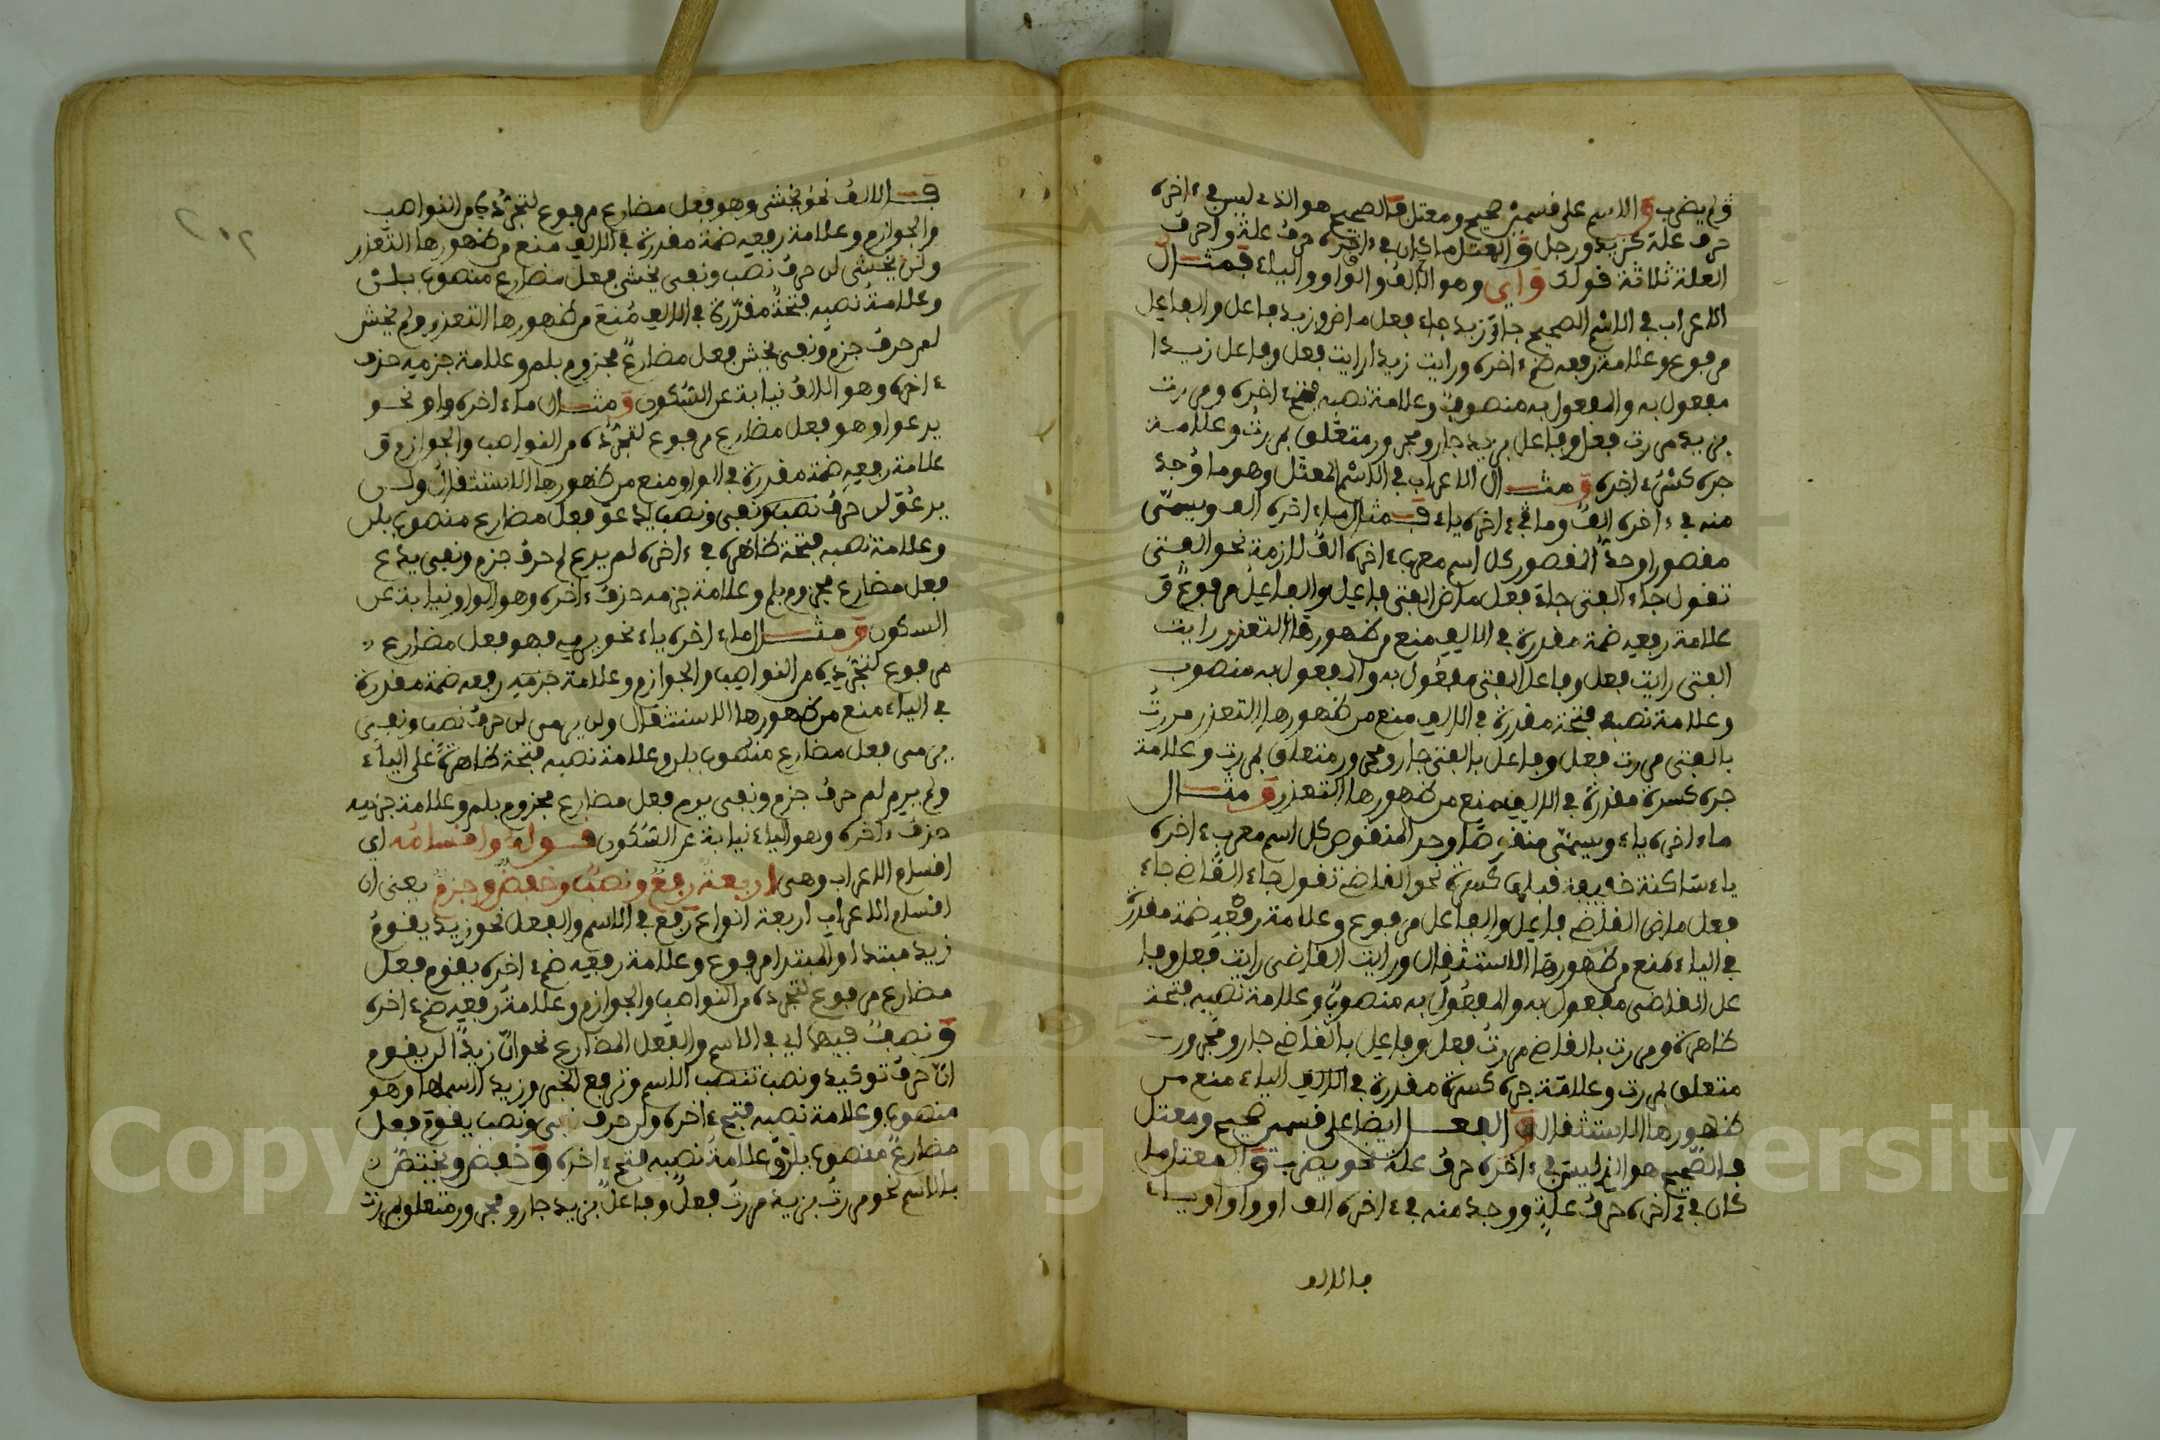 ولم يضرب والاسم على قسمين صحيح ومعتل فالصحيح هو الذي ليس في ءاخره
حرف علة كزيد ورجل والمعتل ما كان في ءاخره حرف علة واحرف
العلة ثلاثة قولك واي وهو الالف والواو والياء فمثال
الاعراب في الاسم الصحيح جاء زيد جاء فعل ماض وزيد فاعل والفاعل
مرفوع وعلامة رفعه ضم ءاخره ورايت زيدا رايت فعل وفاعل زيدا
مفعول به والمفعول به منصوب وعلامة نصبه فتح ءاخره ومررت
بزيد مررت فعل وفاعل بزيد جار ومجرور متعلق بمررت وعلامة
جره كسر ءاخره ومثال الاعراب في الاسم المعتل وهو ما وجد
منه في ءاخره الف وما في ءاخره ياء فمثال ما ءاخره الف ويسمى
مقصورا وحد المقصور كل اسم معرب ءاخره الف لازمة نحو الفتى
تقول جاء الفتى جاء فعل ماض الفتى فاعل والفاعل مرفوع و
علامة رفعه ضمة مقدرة في الالف منع من ظهورها التعذر رايت
الفتى رايت فعل وفاعل الفتى مفعول به والمفعول به منصوب
وعلامة نصبه فتحة مقدرة في الالف منع من ظهورها التعذر مررت
بالفتى مررت فعل وفاعل بالفتى جار ومجرور متعلق بمررت وعلامة
جره كسرة مقدرة في الالف منع من ظهورها التعذر ومثال
ما ءاخره ياء ويسمى منقوصا وحد المنقوص كل اسم معرب ءاخره
ياء ساكنة خفيفة قبلها كسرة نحو القاضي تقول جاء القاضي جاء
فعل ماض القاضي فاعل والفاعل مرفوع وعلامة رفعه ضمة مقدرة
في الياء منع من ظهورها الاستثقال ورايت القاضي رايت فعل وفا
عل القاضي مفعول به والمفعول به منصوب وعلامة نصبه فتحة
ظاهرة ومررت بالقاضي مررت فعل وفاعل بالقاضي جار ومجرور
متعلق بمررت وعلامة جره كسرة مقدرة في الالف الياء منع من
ظهورها الاستثقال والفعل ايضا على قسمين صحيح ومعتل
فالصحيح هو الذي ليس في ءاخره حرف علة نحو يضرب والمعتل ما
كان في ءاخره حرف علة ووجد منه في ءاخره الف او واو او ياء
فالالف
فالالف نحو يخشى وهو فعل مضارع مرفوع لتجرده من النواصب
والجوازم وعلامة رفعه ضمة مقدرة في الالف منع من ظهورها التعذر
ولن يخشى لن حرف نصب ونفي يخشى فعل مضارع منصوب بلن
وعلامة نصبه فتحة مقدرة في الالف منع من ظهورها التعذر ولم يخش
لم حرف جزم ونفي يخش فعل مضارع مجزوم بلم وعلامة جزمه حذف
ءاخره وهو الالف نيابة عن السكون ومثال ما ءاخره واو نحو
يدعوا وهو فعل مضارع مرفوع لتجرده من النواصب والجوازم و
علامة رفعه ضمة مقدرة في الواو منع من ظهورها الاستثقال ولن
يدعو لن حرف نصب ونفي ونصب يدعو فعل مضارع منصوب بلن
وعلامة نصبه فتحة ظاهرة في ءاخره لم يدع لم حرف جزم ونفي يدع
فعل مضارع مجزوم بلم وعلامة جزمه حذف ءاخره وهو الواو نيابة عن
السكون ومثال ما ءاخره ياء نحو يرمي فهو فعل مضارع
مرفوع لتجرده من النواصب والجوازم وعلامة جزمه رفعه ضمة مقدرة
في الياء منع من ظهورها الاستثقال ولن يرمي لن حرف نصب ونفي
يرمي فعل مضارع منصوب بلن وعلامة نصبه فتحة ظاهرة على الياء
ولم يرم لم حرف جزم ونفي يرم فعل مضارع مجزوم بلم وعلامة جزمه
حذف ءاخره وهو الياء نيابة عن السكون قوله واقسامه اي
اقسام الاعراب وهي اربعة رفع ونصب وخفض وجزم يعني ان
اقسام الاعراب اربعة انواع رفع في الاسم والفعل نحو زيد يقوم
زيد مبتدا والمبتدا مرفوع وعلامة رفعه ضم ءاخره يقوم فعل
مضارع مرفوع لتجرده من النواصب والجوازم وعلامة رفعه ضم ءاخره
ونصب فيهما اي في الاسم والفعل المضارع نحو ان زيدا لن يقوم
ان حرف توكيد ونصب تنصب الاسم وترفع الخبر وزيد اسمها وهو
منصوب وعلامة نصبه فتح ءاخره ولن حرف نفي ونصب يقوم فعل
مضارع منصوب بلن وعلامة نصبه فتح ءاخره وخفض ويختص
بالاسم نحو مررت بزيد مررت فعل وفاعل بزيد جار ومجرور متعلق بمررت